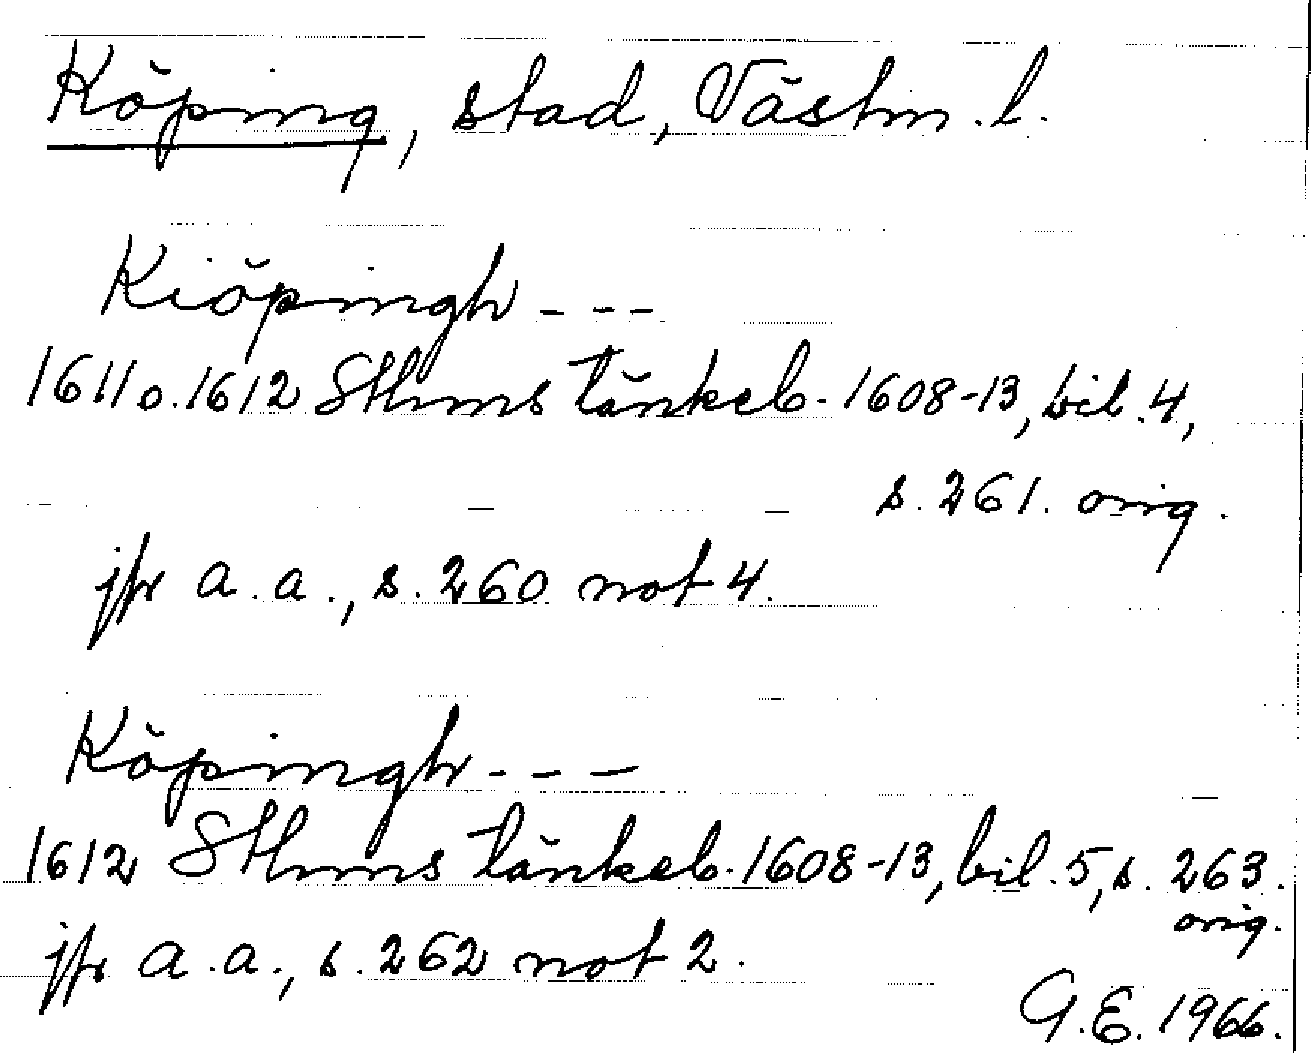 Köping, stad, Västm. l.
Kiöpingh - - -
1611 o. 1612 Sthms tänkeb. 1608-13, bil. 4,
s. 261. orig.
jfr a. a., s. 260 not 4.
Köpingh - - -
1612 Sthms tänkeb. 1608-13, bil. 5, s. 263.
orig.
jfr a. a., s. 262 not 2.
G. E. 1966.